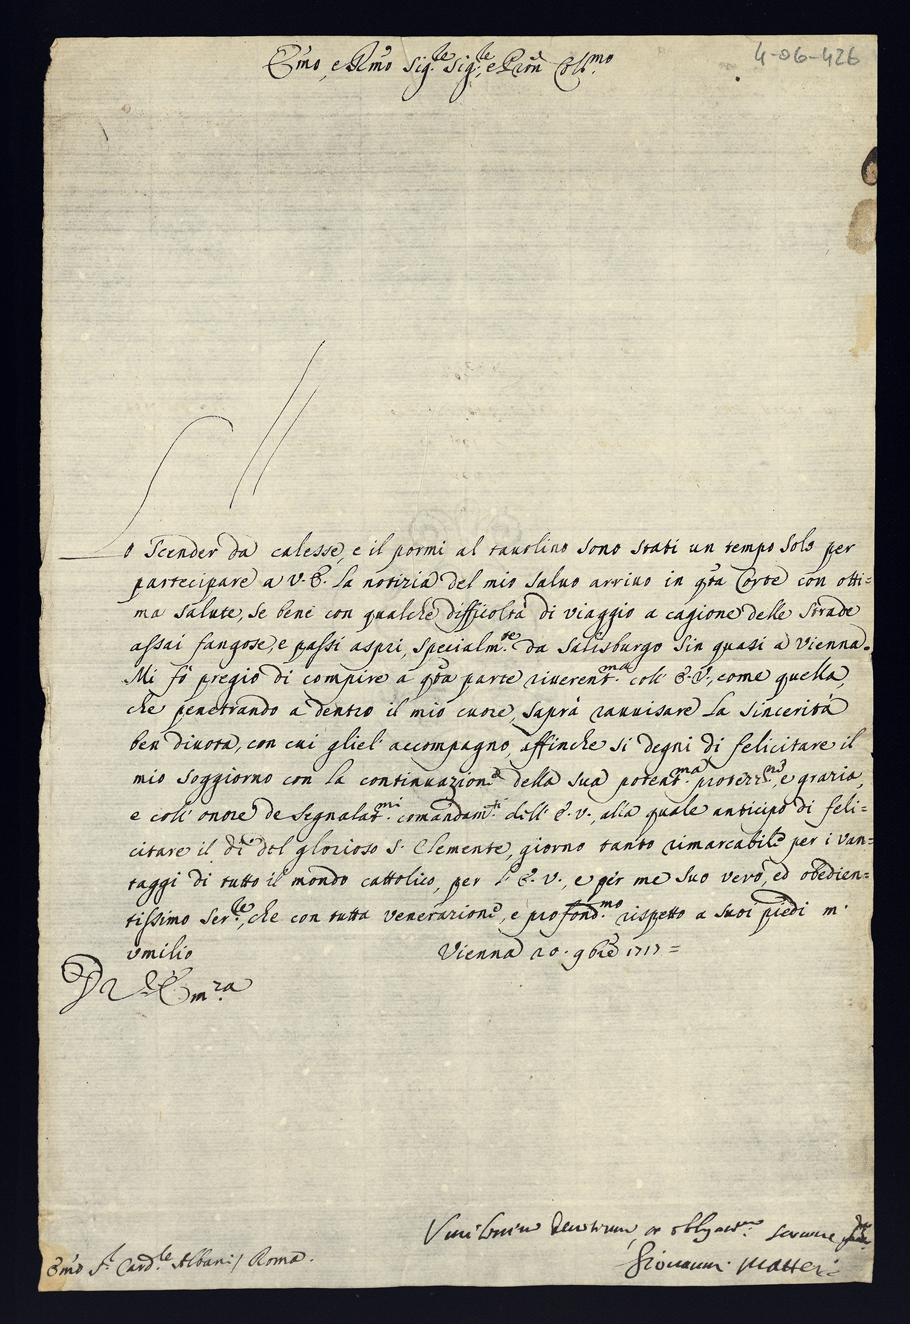 4-06-426
Emo, e Rmo Sig.re Sig.re, e Pron Col.mo
Lo Scender da calesse, e il pormi al tauolino sono stati un tempo solo per
partecipare a V. E. la notizia del mio saluo arriuo in qta Corte con otti=
ma salute, se bene con qualche difficoltà di viaggio a cagione delle strade
assai fangose, e passi aspri, specialm.te da Salisburgo sin quasi a Vienna.
Mi fò pregio di compire a qta parte riuerent.ma coll' E. V., come quella,
che penetrando a dentro il mio cuore, saprà rauuisare la sincerità
ben diuota, con cui gliel' accompagno, affinche si degni di felicitare il
mio soggiorno con la continuazione della sua potent.ma protezz.ne, e grazia,
e coll' onore de segnalat.mi comandam.ti dell' E. V., alla quale anticipo di feli=
citare il dì del glorioso S. Clemente, giorno tanto rimarcabile per i van=
taggi di tutto il mondo cattolico, per l' E. V., e per me suo vero, ed obedien=
tissimo ser.re, che con tutta venerazione, e profond.mo rispetto a suoi piedi m'
vmilio Vienna 20. 9bre 1717=
D V. Em.za
Vmilissimo Deuotissimo, et obligat.mo seruitore
Giouanni Matteo
Emo S.r Card.le Albani / Roma.